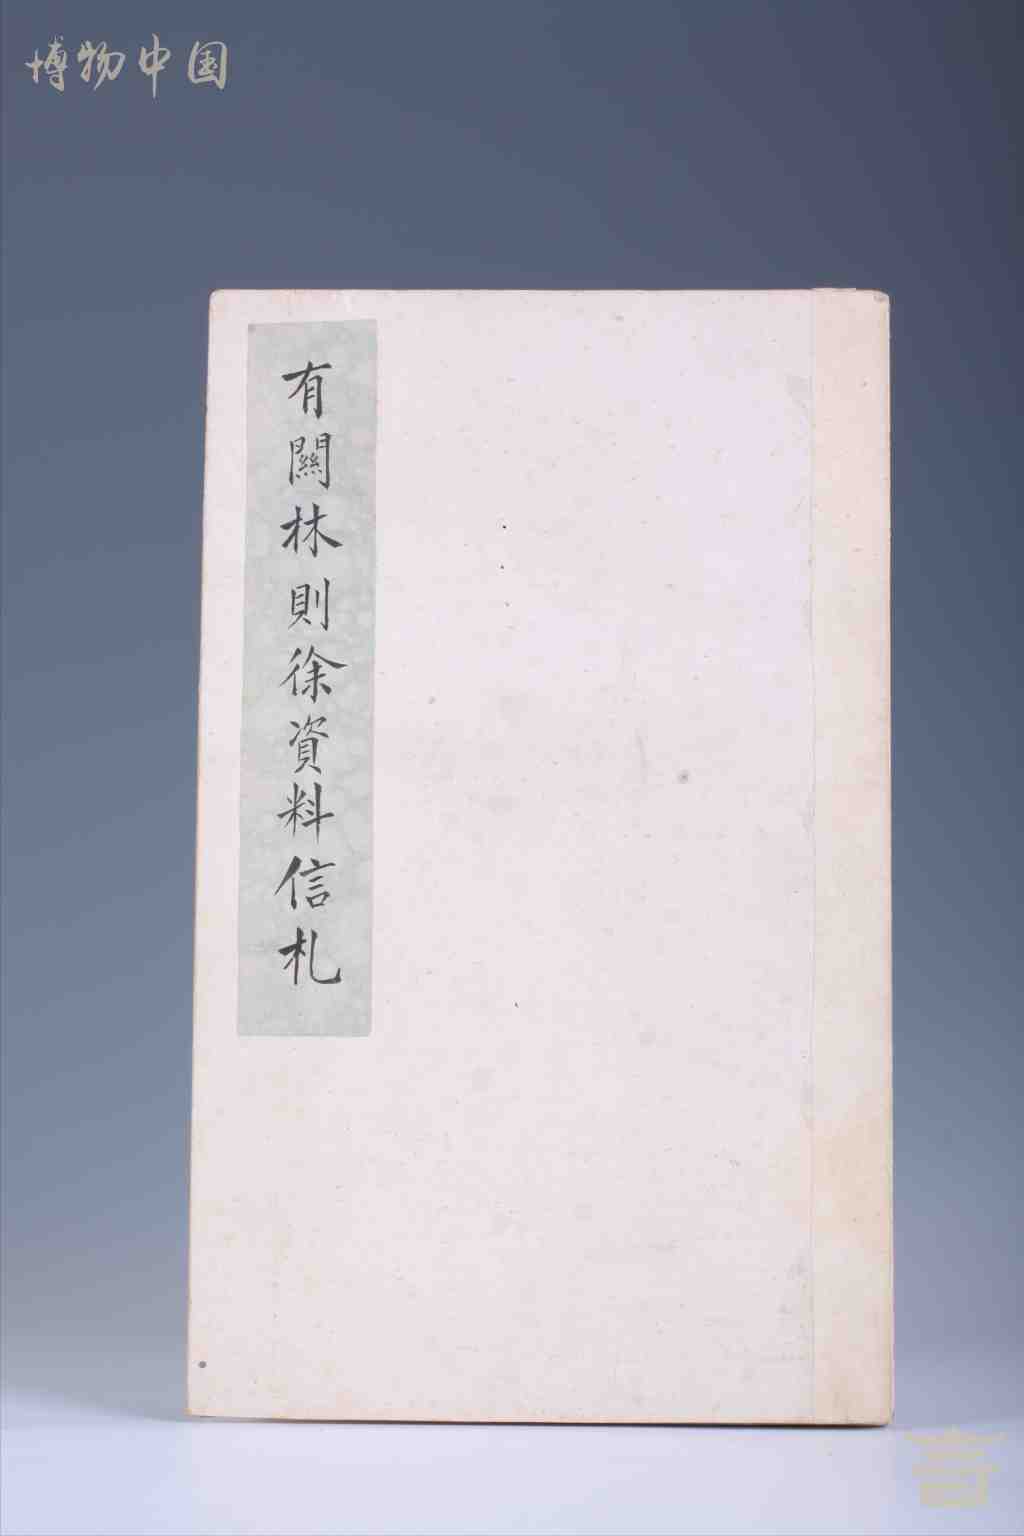 博物中国
有關林則徐資料信札